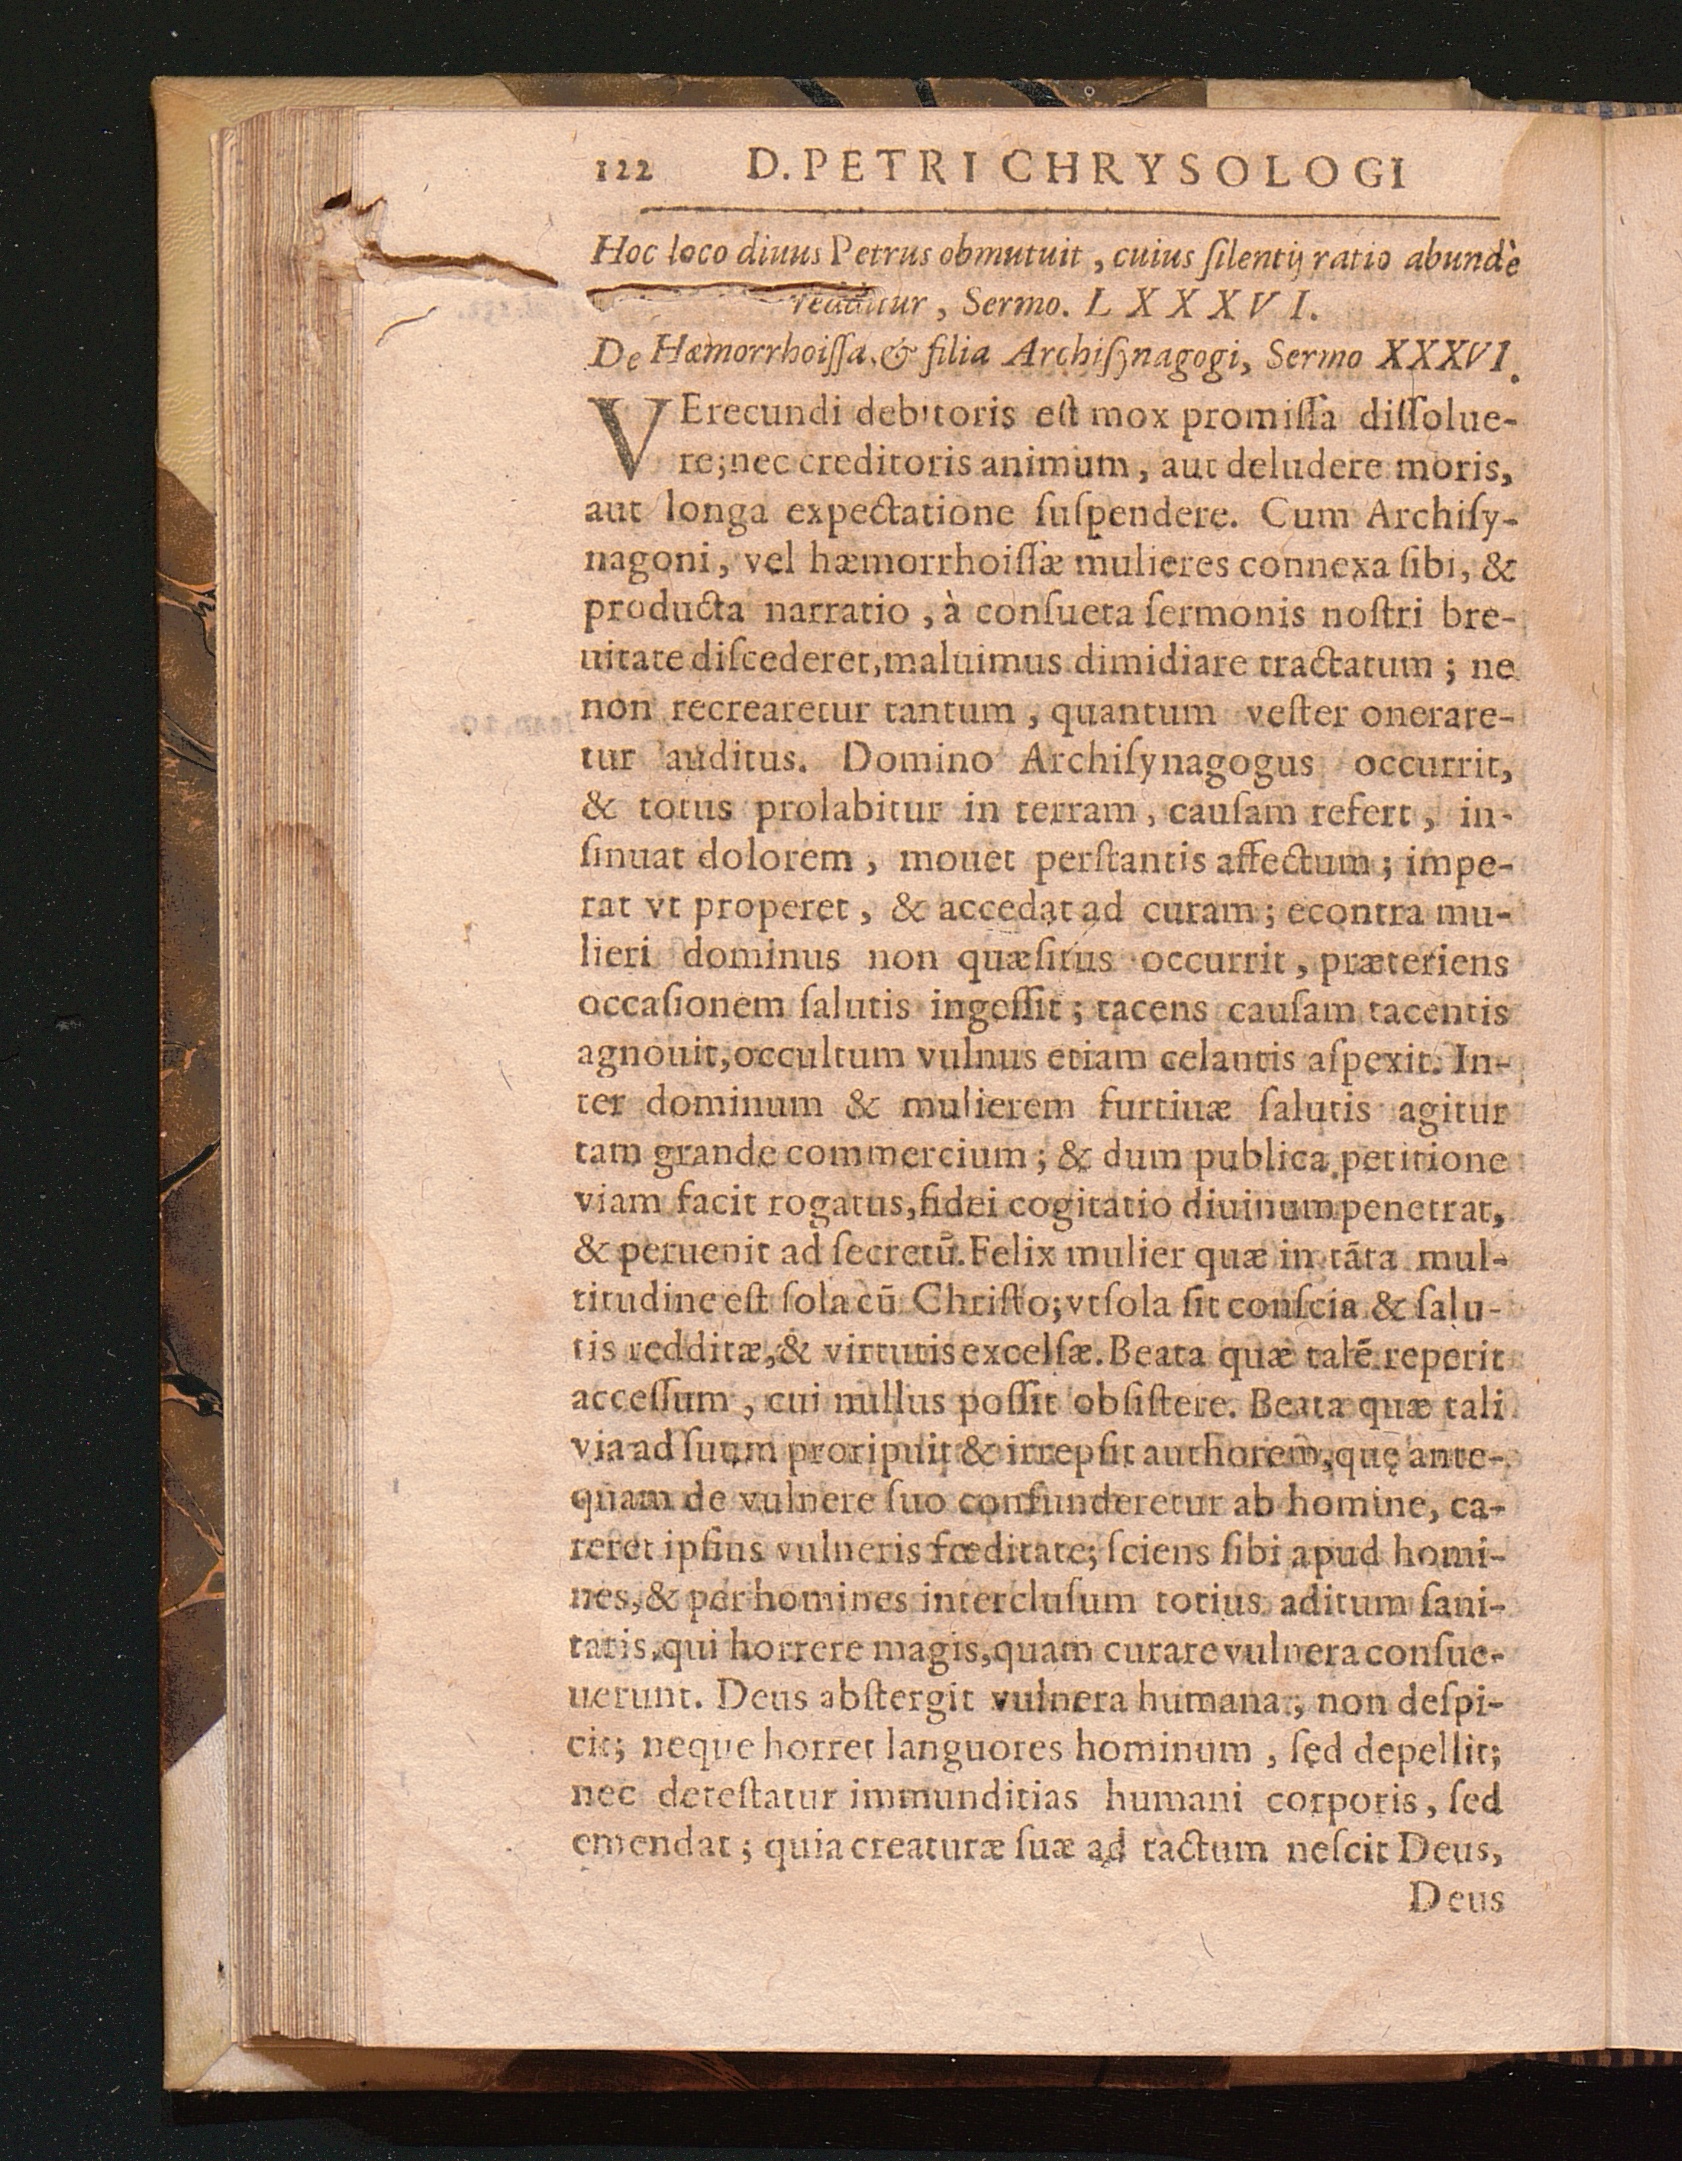 122 D. PETRI CHRYSOLOGI
Hoc loco diuus Petrus obmutuit, cuius ſilentij ratio abundè
redditur, Sermo. LXXXVI.
De Hæmorrhoiſſa, & filia Archiſynagogi, Sermo XXXVI.
VErecundi debitoris eſt mox promiſſa diſſolue-
re; nec creditoris animum, aut deludere moris,
aut longa expectatione ſuſpendere. Cum Archiſy-
nagoni, vel hæmorrhoiſſæ mulieres connexa ſibi, &
producta narratio, à conſueta ſermonis noſtri bre-
uitate diſcederet, maluimus dimidiare tractatum; ne
non recrearetur tantum, quantum veſter onerare-
tur auditus. Domino Archiſynagogus occurrit,
& totus prolabitur in terram, cauſam refert, in-
ſinuat dolorem, mouet perſtantis affectum; impe-
rat vt properet, & accedat ad curam; econtra mu-
lieri dominus non quæſitus occurrit, præteriens
occaſionem ſalutis ingeſſit; tacens cauſam tacentis
agnouit, occultum vulnus etiam celantis aſpexit. In-
ter dominum & mulierem furtiuæ ſalutis agitur
tam grande commercium; & dum publica petitione
viam facit rogatus, fidei cogitatio diuinum penetrat,
& peruenit ad ſecretū. Felix mulier quæ in tāta mul-
titudine eſt ſola cū Chriſto; vt ſola ſit conſcia & ſalu-
tis redditæ, & virtutis excelſæ. Beata quæ talē reperit
acceſſum, cui nullus poſſit obſiſtere. Beata quæ tali
via ad ſuum proripuit & irrepſit authorem, quę ante-
quam de vulnere ſuo confunderetur ab homine, ca-
reret ipſius vulneris fœditate; ſciens ſibi apud homi-
nes, & per homines intercluſum totius aditum ſani-
tatis, qui horrere magis, quam curare vulnera conſue-
uerunt. Deus abſtergit vulnera humana, non deſpi-
cit; neque horret languores hominum, ſed depellit;
nec deteſtatur immunditias humani corporis, ſed
emendat; quia creaturæ ſuæ ad tactum neſcit Deus,
Deus